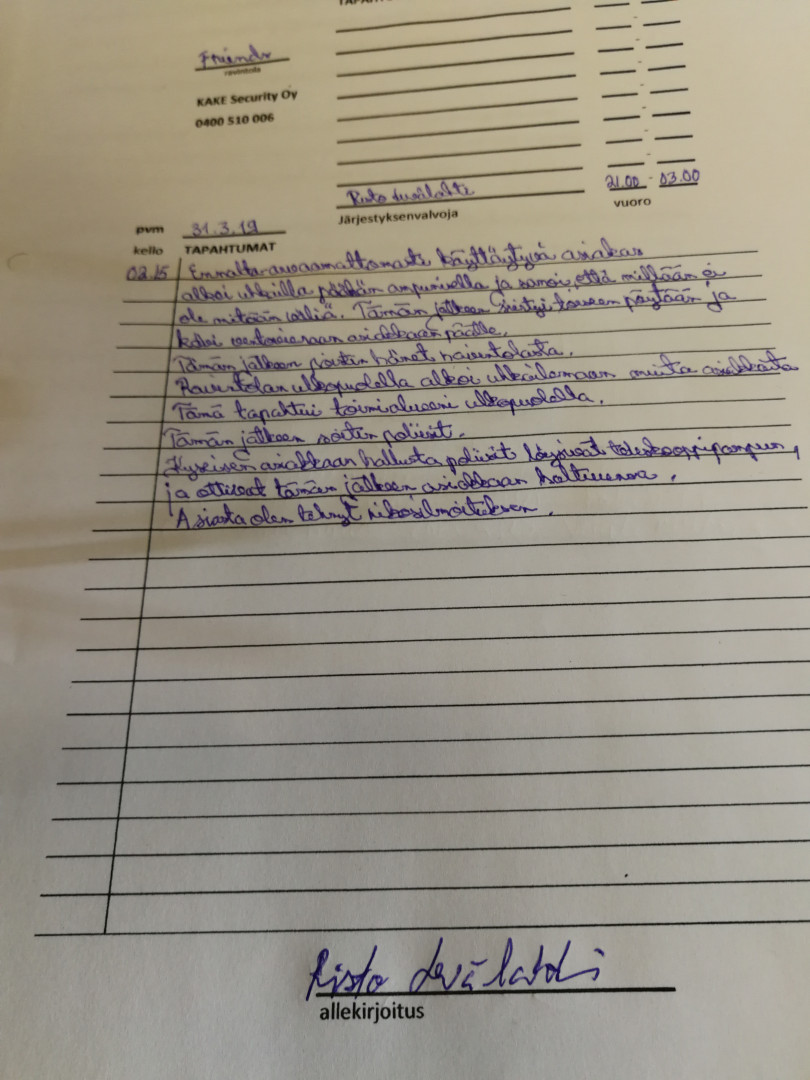 Friends
ravintola
KAKE Security Oy
0400 510 006
Risto
Järjestyksenvalvoja
21.00 - 03.00
vuoro
pvm 31.3.19
kello TAPAHTUMAT
02.15 Ennalta-arvaamattomasti käyttäytyvä asiakas
alkoi uhkailla päähän ampumisella ja sanoi, että millään ei
ole mitään väliä. Tämän jälkeen siirtyi toiseen pöytään ja
kävi ventovieraan asiakkaan päälle.
Tämän jälkeen poistin hänet ravintolasta.
Ravintolan ulkopuolella alkoi uhkailemaan muita asiakkaita
Tämä tapahtui toimialueeni ulkopuolella.
Tämän jälkeen soitin poliisit.
Kyseisen asiakkaan hallusta poliisit löysivät teleskooppipampun,
ja ottivat tämän jälkeen asiakkaan haltuunsa.
Asiasta olen tehnyt rikosilmoituksen.
Risto
allekirjoitus